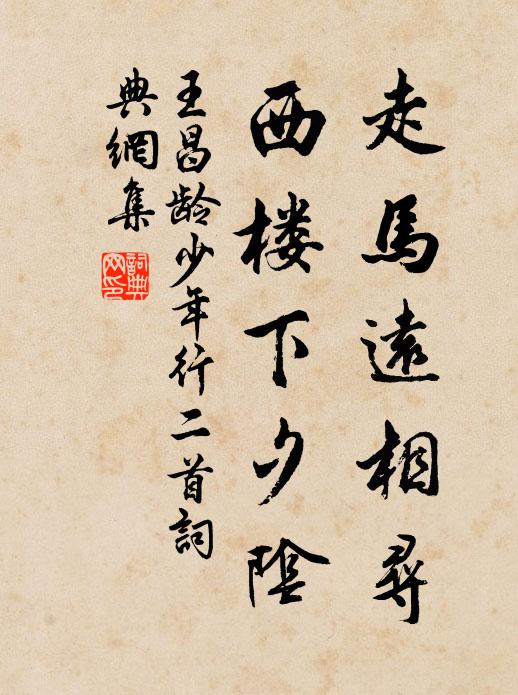 走馬遠相尋
西楼下夕陰
王昌龄少年行二首詞
典網集
詞典網印